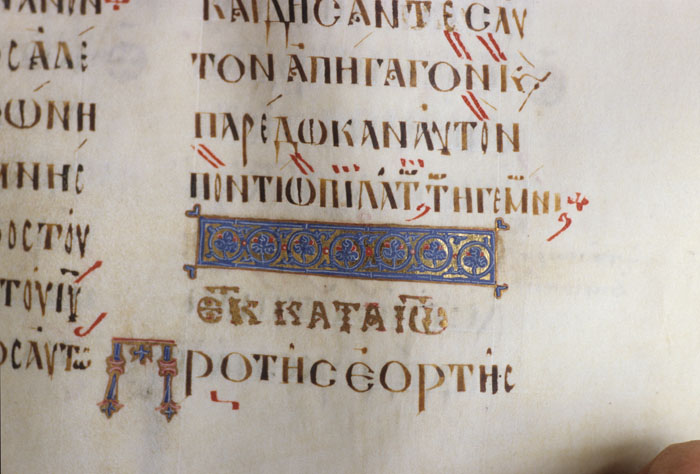 ΟϹΑΛΕ
ΩΝΗ
ΝΗϹ
ΟϹΤΟΥ
ΤΟΥΙΥ
ΟϹΑΥΤΩ
ΚΑΙΔΗϹΑΝΤΕϹΑΥ
ΤΟΝΑΠΗΓΑΓΟΝΚ
ΠΑΡΕΔΩΚΑΝΑΥΤΟΝ
ΠΟΝΤΙΩΠΙΛΑΤΩ ΤΩΗΓΕΜΝΙ
ΕΚ ΚΑΤΑ ΙΩ
ΠΡΟΤΗϹΕΟΡΤΗϹ